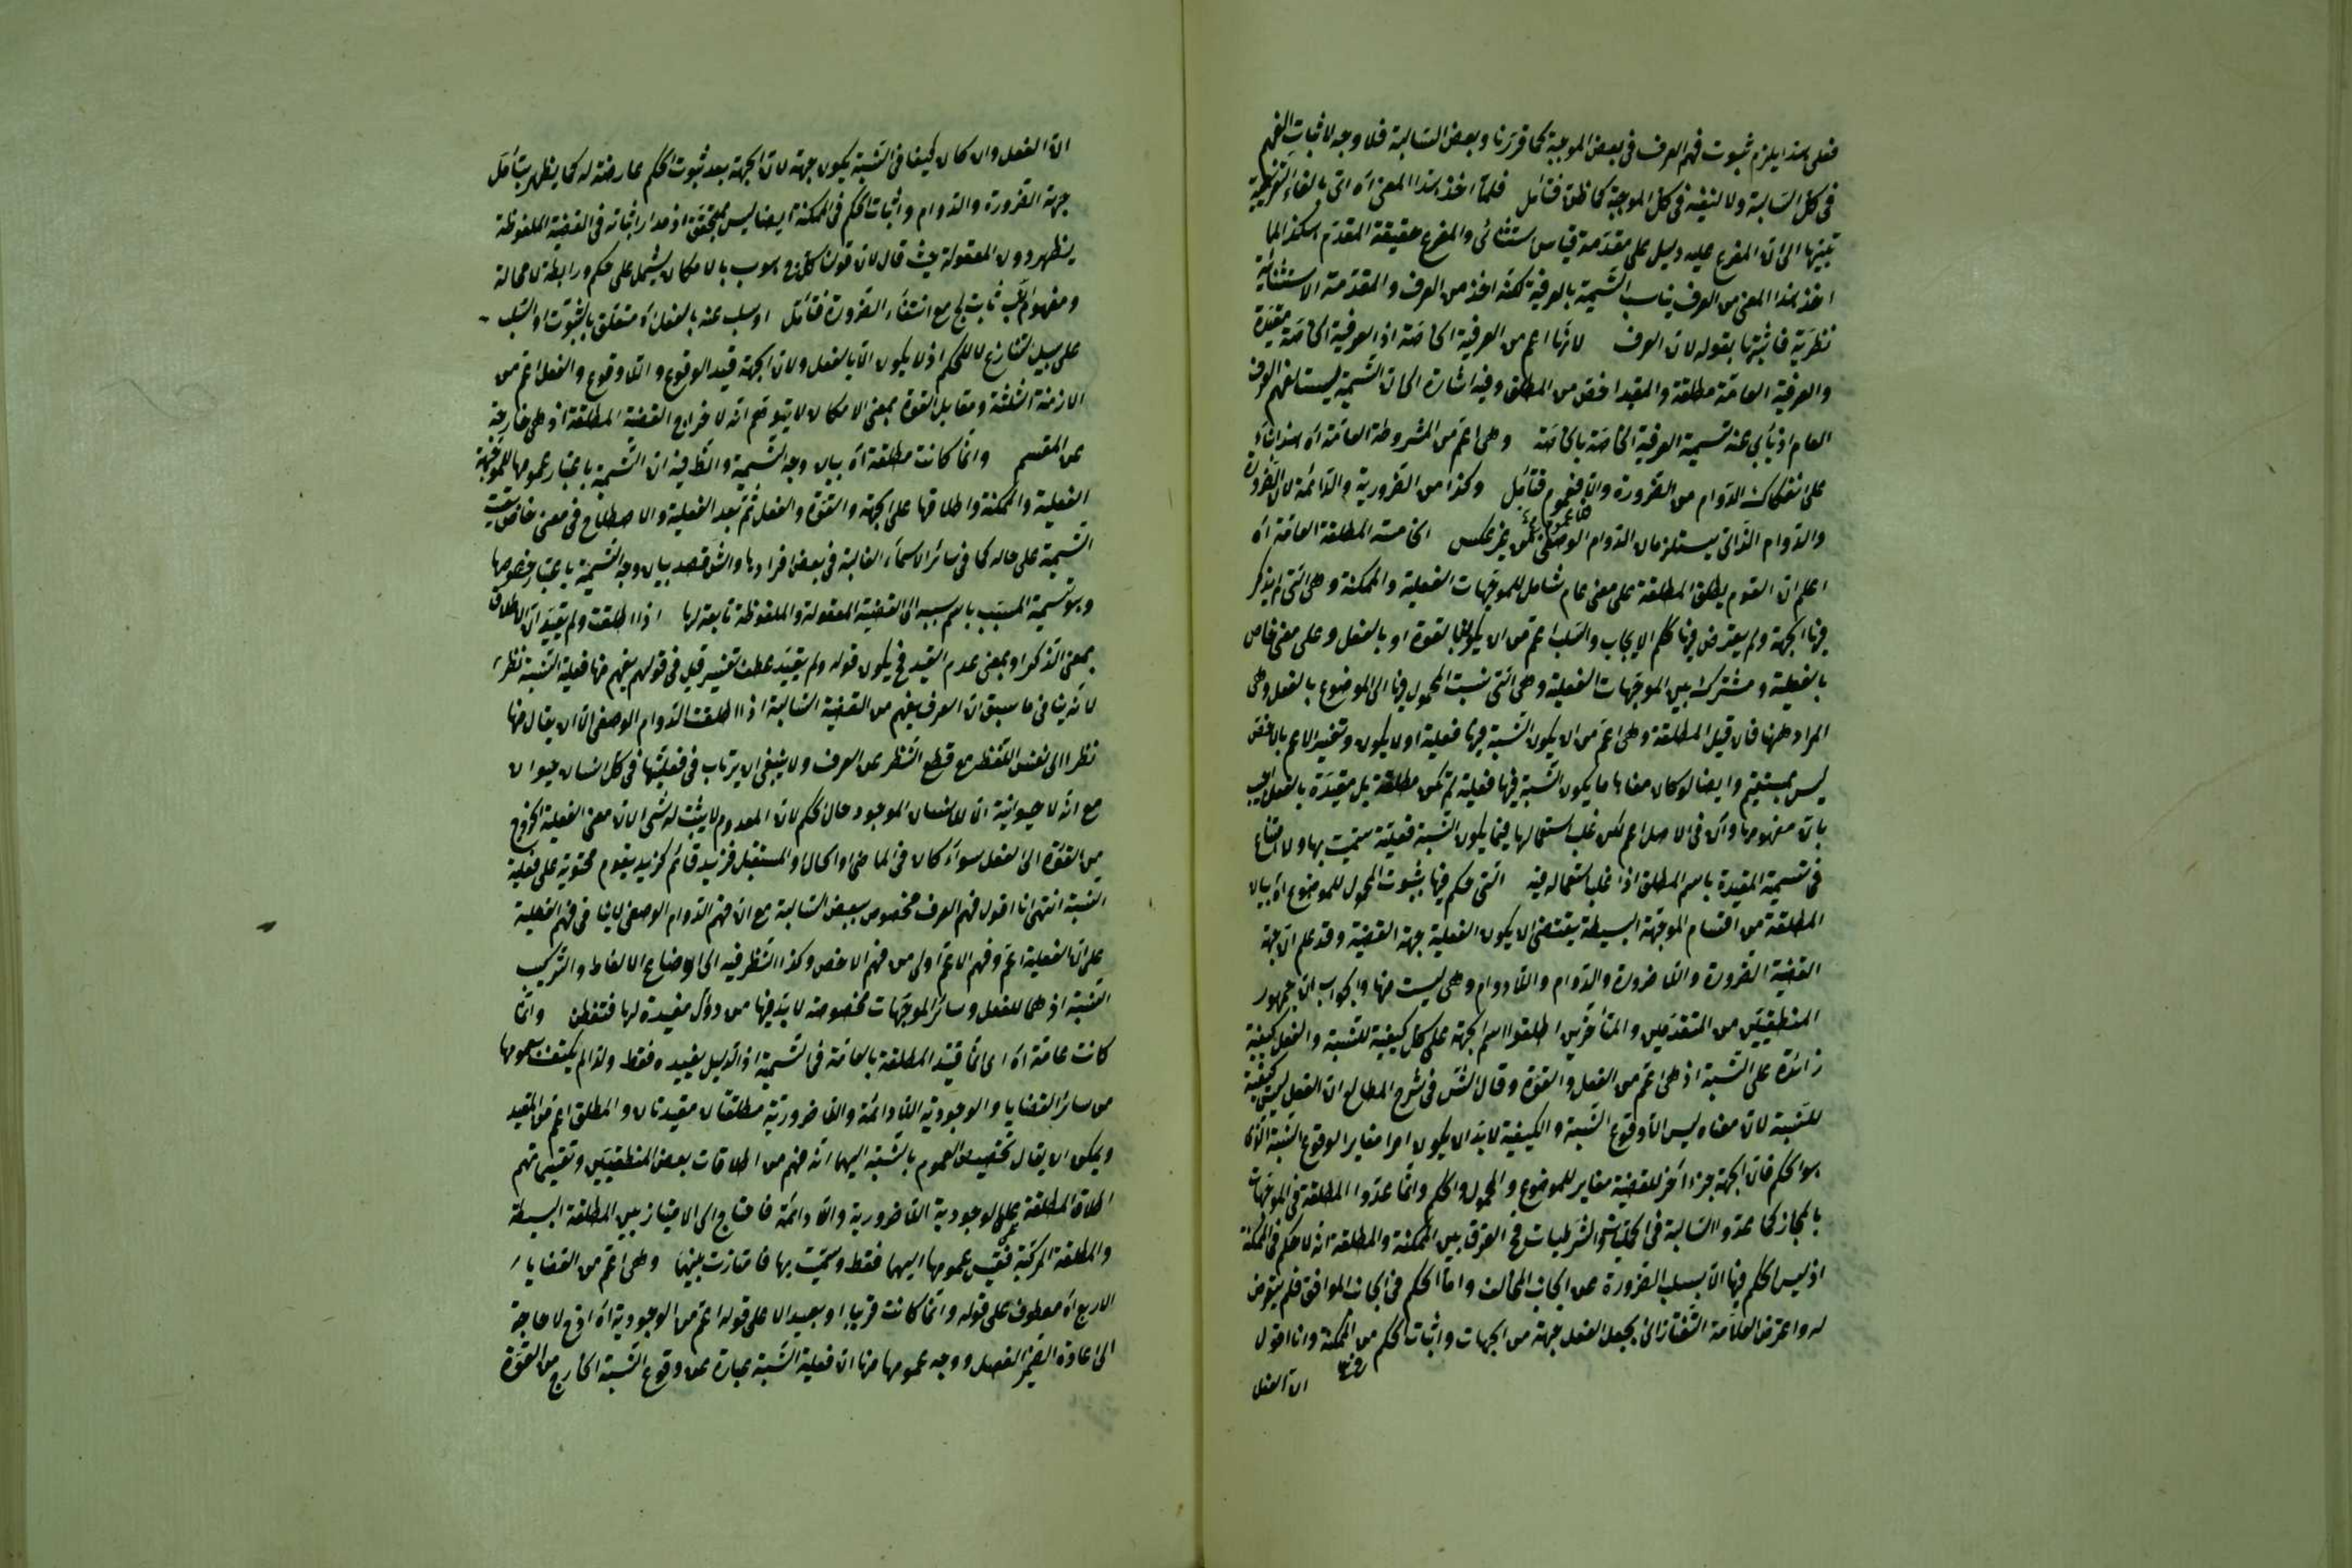 فعلى هذا يلزم ثبوت فهم العرف فى بعض الموجبة كما قررنا وبعض السالبة فلا وجه لاثبات الفهم
فى كل السالبة ولا لنفيه فى كل الموجبة كما ظن فتأمل فلما اخذ هذا المعنى اه اتى بالفاء التفريعية
تنبيها الى ان المفرع عليه دليل على مقدمة قياس استثنائى والمفرع حقيقة المقدم هكذا لما
اخذ هذا المعنى من العرف يناسب التسمية بالعرفية لكنه اخذ من العرف والمقدمة الاستثنائية
نظرية فاثبتها بقوله لان العرف لانها اعم من العرفية الخاصة اذ العرفية الخاصة مقيدة
والعرفية العامة مطلقة والمقيد اخص من المطلق وفيه اشارة الى ان التسمية ليست لفهم العرف
العام اذ يأبى عنه تسمية العرفية الخاصة بالخاصة وهى اعم من المشروطة العامة اه هذا بناء
على انفكاك الدوام من الضرورة والا فعموم فتأمل وكذا من الضرورية والدائمة لان الضرورة
والدوام الذاتى يستلزمان الدوام الوصفى من غير عكس الخامسة المطلقة العامة اه
اعلم ان القوم يطلق المطلقة على معنى عام شامل للموجهات الفعلية والممكنة وهى التى لم يذكر
فيها الجهة ولم يتعرض فيها حكم الايجاب والسلب اعم من ان يكون بالقوة او بالفعل وعلى معنى خاص
بالفعلية ومشترك بين الموجهات الفعلية وهى التى نسبت المحمول فيها الى الموضوع بالفعل وهى
المراد ههنا فان قيل المطلقة وهى اعم من ان يكون النسبة فيها فعلية اولا يكون وتفسير الاعم بالاخص
ليس بمستقيم وايضا لو كان معناها ما يكون النسبة فيها فعلية لم تكن مطلقة بل مقيدة بالفعل اجيب
بان مفهومها وان فى الاصل اعم لكن غلب استعمالها فيما يكون النسبة فعلية سميت بها ولا امتناع
فى تسمية المقيدة باسم المطلق اذا غلب استعماله فيه التى حكم فيها بثبوت المحمول للموضوع اه بيان
المطلقة من اقسام الموجهة البسيطة يقتضى ان يكون الفعلية جهة القضية وقد علم ان جهة
القضية الضرورة واللا ضرورة والدوام واللا دوام وهى ليست منها والجواب ان جمهور
المنطقيين من المتقدمين والمتأخرين اطلقوا اسم الجهة على كل كيفية للنسبة والفعل كيفية
زائدة على النسبة اذ هى اعم من الفعل والقوة وقال الش فى شرح المطالع ان الفعل ليس كيفية
للنسبة لان معناه ليس الا وقوع النسبة والكيفية لا بد ان يكون امرا مغايرا لوقوع النسبة الذى
هو الحكم فان الجهة جزء اخر للقضية مغاير للموضوع والمحمول والحكم وانما عدوا المطلقة فى الموجهات
بالمجاز كما عدوا السالبة فى الحمليات والشرطيات فح الفرق بين الممكنة والمطلقة انه لا حكم فى الممكنة
اذ ليس الحكم فيها الا بسلب الضرورة عن الجانب المخالف واما الحكم فى الجانب الموافق فلم يتعرض
له واعترض العلامة التفتازانى بجعل الفعل جهة من الجهات واثبات الحكم من الممكنة وانا اقول
ان الفعل
ان الفعل وان كان كيفا فى النسبة يكون جهة لان الجهة بعد ثبوت الحكم عارضة له كما يظهر بتأمل
جهة الضرورة والدوام واثبات الحكم فى الممكنة ايضا ليس بمحقق اذ مدار اثباته فى القضية الملفوظة
يظهر دون المعقولة حيث قال لان قولنا كل ج هو ب بالامكان يشتمل على حكم ورابطة لا محالة
ومفهوم ب ثابت لج مع انتفاء الضرورة فتأمل او سلب عنه بالفعل اه متعلق بالثبوت او السلب
على سبيل التنازع لا للحكم اذ لا يكون الا بالفعل ولان الجهة قيد الوقوع واللا وقوع والفعل اعم من
الازمنة الثلثة ومقابل القوة بمعنى الامكان لا يتوهم انه لاخراج القضية المطلقة اذ هى خارجة
عن المقسم وانما كانت مطلقة اه بيان وجه التسمية والطرفية ان التسمية باعتبار عمومها للموجهة
الفعلية والممكنة واطلاقها على الجهة والقوة والفعل ثم بعد الفعلية والاصطلاح فى معنى خاص بقيت
التسمية على حاله كما فى سائر الاسماء الغالبة فى بعض افرادها والش قصد بيان وجه التسمية باعتبار خصوصها
وهو تسمية المسبب باسم سببه الى القضية المعقولة والملفوظة تابعة لها اذا اطلقت ولم يقيد ان الاطلاق
بمعنى الذكر او بمعنى عدم القيد فح يكون قوله ولم يقيد عطف تفسير قيل فى قولهم يفهم منها فعلية النسبة نظر
لانه ينافى ما سبق ان العرف يفهم من القضية السالبة اذا اطلقت الدوام الوصفى الا ان يقال منها
نظرا الى نفس اللفظ مع قطع النظر عن العرف ولا ينبغى ان يرتاب فى فعليتها فى كل انسان حيوان
مع انه لا حيوانية الا للانسان الموجود حال الحكم لان المعدوم لا يثبت له شئ لان معنى الفعلية الخروج
من القوة الى الفعل سواء كان فى الماضى او الحال او المستقبل فزيد قائم كزيد يقوم محتوية على فعلية
النسبة انتهى انا اقول فهم العرف مخصوص ببعض السالبة مع ان فهم الدوام الوصفى لا ينافى فهم الفعلية
على ان الفعلية اعم وفهم الاعم اولى من فهم الاخص وكذا النظر فيه الى اوضاع الالفاظ والتركيب
النسبة اذ هما للفعل وسائر الموجهات مخصوصة لا بد فيها من دوال مفيدة لها فتفطن وانما
كانت عامة اه اى انما قيد المطلقة بالعامة فى التسمية اذ الدليل يفيده فقط ولذا لم يكتف بعمومها
من سائر القضايا والوجودية اللا دائمة واللا ضرورية مطلقتان مقيدتان والمطلق اعم من المقيد
ويمكن ان يقال تخصيص العموم بالنسبة اليهما انه فهم من اطلاقات بعض المنطقيين وتقسيماتهم
اطلاق المطلقة على الوجودية اللا ضرورية واللا دائمة فاحتاج الى الامتياز بين المطلقة البسيطة
والمطلقة المركبة فقيس عمومها اليهما فقط وسميت بها فامتازت بينهما وهى اعم من القضايا
الاربع اه معطوف على قوله وانما كانت قريبا او بعيدا لا على قوله اعم من الوجودية اه اذ ح لا حاجة
الى اعادة الضمير الفصل ووجه عمومها منها ان فعلية النسبة عبارة عن وقوع النسبة الخارج من القوة